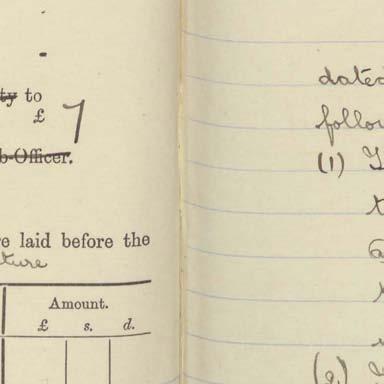 ty to
£ 7
b-Officer.
re laid before the
ture
Amount.
£ s. d.
dated
follou
(1)
(2)